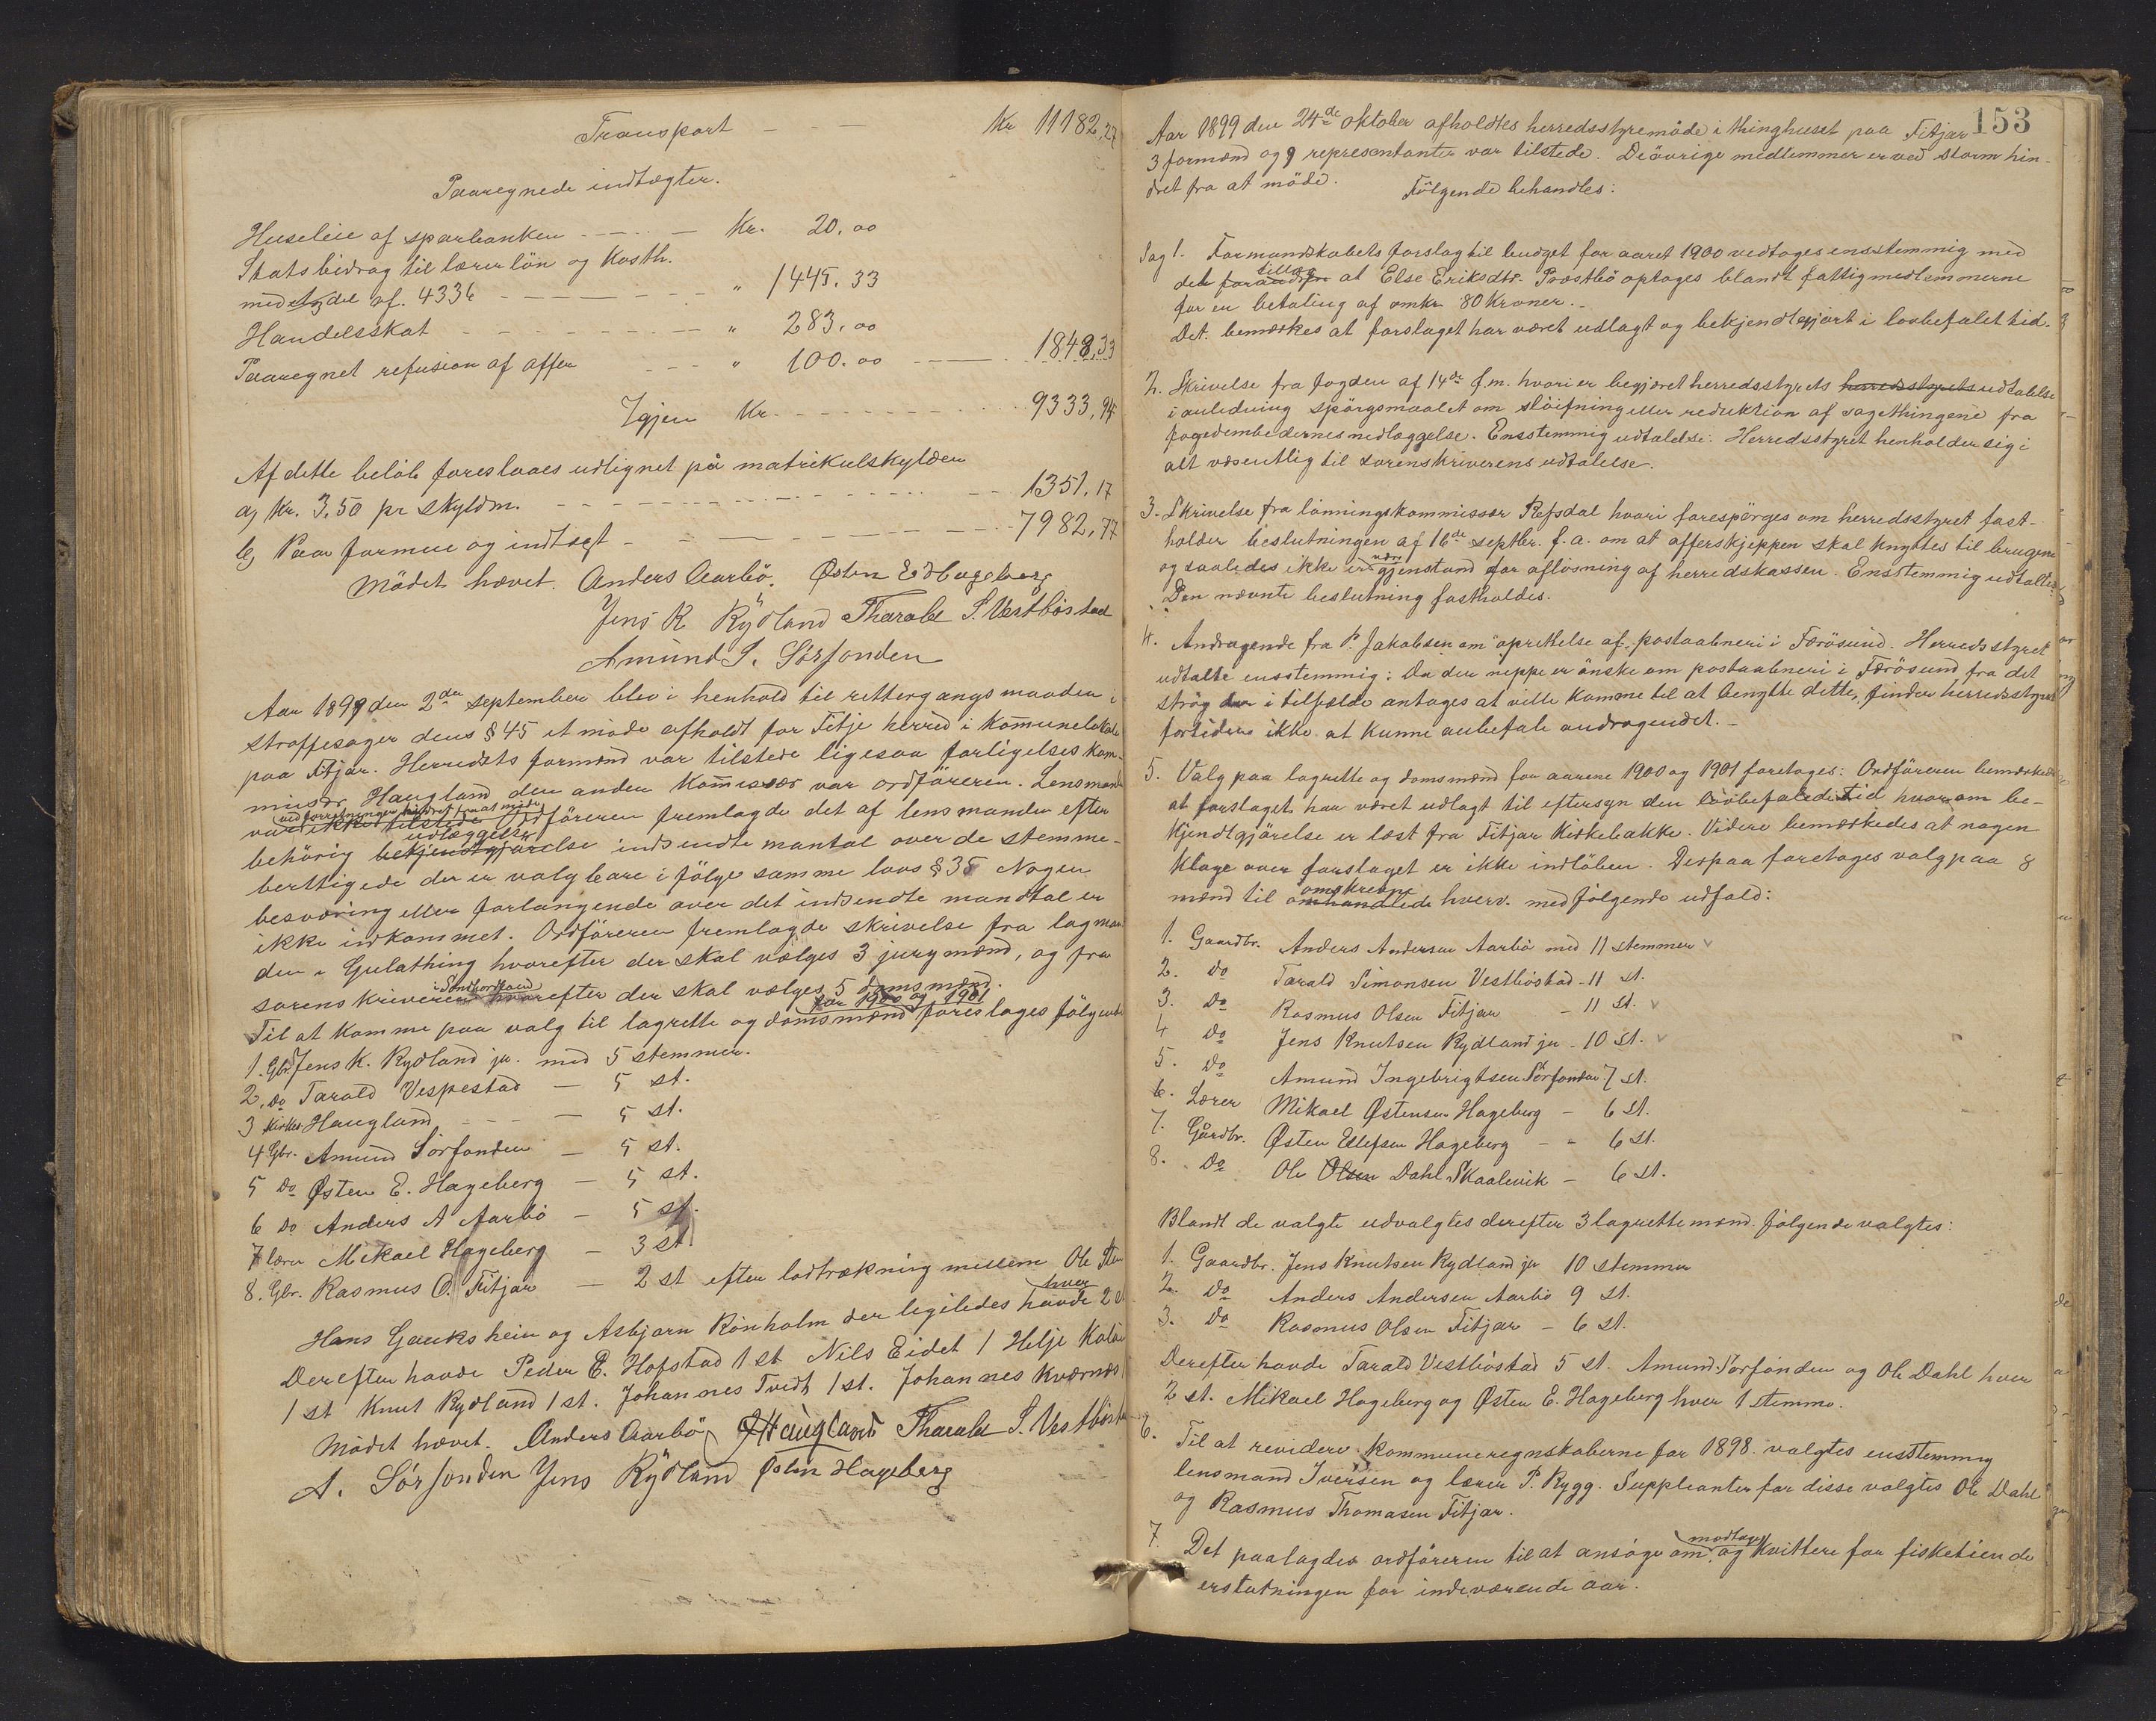 Transport - - - Kr 11182,27
Paaregnede indtægter.
Huseleie af sparbanken - - - - Kr. 20,00
Statsbidrag til lærerlön og Kosth.
med ⅓ del af. 4336 - - - - - - " 1445.33
Handelsskat - - - - - - - " 283,00
Paaregnet refusion af offer - - - " 100.00 - - - 1848,33
Igjen Kr. - - - - - - - - 9333,94
Af dette belöb foreslaaes udlignet på matrikulskylden
a, Kr. 3,50 pr Skyldm. - - - - - - - - - - 1351,17
b, Paa formue og indtægt - - - - - - - - 7982,77
Mödet hævet. Anders Aarbö. Østen E Hageberg
Jens K Rydland Tharald S. Vestböstad
Amund I. Sörfonden
Aar 1899 den 2den september blev i henhold til rettergangsmaaden i
straffesager dens § 45 et möde afholdt for Fitje herred i Kommunelokale
paa Fitjar. Herredets formænd var tilstede ligesaa forligelseskom-
missær Haugland den anden Kommissær var ordföreren. Lensmand
ved forretninger hindret fra at möde
var ikke tilstede Ordföreren fremlagde det af lensmanden efter
udlæggelse
behörig bekjendtgjörelse indsendte mantal over de stemme-
berttigede der er valgbare i fölge samme lovs § 35 Nogen
besværing eller forlangende over det indsendte mandtal er
ikke indkommet. Ordföreren fremlagde skrivelse fra lagman
den i Gulathing hvorefter der skal vælges 3 jurymænd, og fra
i Söndhordland
sorenskriveren hvorefter der skal vælges 5 domsmænd.
for 1900 og 1901
Til at komme paa valg til lagrette og domsmænd foreslages fölgende
1. Gbr. Jens K. Rydland jr. med 5 stemmer.
2. do Tarald Vespestad - 5 st.
3 Kirkes. Haugland - - - 5 st.
4 Gbr. Amund Sörfonden - 5 st.
5 do Østen E. Hageberg - 5 st.
6 do Anders A Aarbö - 5 st.
7 lærer Mikael Hageberg - 3 st.
8. Gbr. Rasmus O. Fitjar - 2 st efter lodtrækning mellem Ole
hver
Hans Gauksheim og Asbjørn Rönholm der ligeledes havde 2 st
Derefter havde Peder E. Hofstad 1 st Nils Eidet 1 Helje
1 st Knut Rydland 1 st. Johannes Tvedt 1 st. Johannes Kværnes
Mödet hævet. Anders Aarbö Haugland Tharald S. Vestböstad
A. Sörfonden Jens Rydland Østen Hageberg
153
Aar 1899 den 24de oktober afholdtes herredsstyremöde i thinghuset paa Fitjar
3 formænd og 9 representanter var tilstede. De övrige medlemmer er ved storm hin-
dret fra at möde. Fölgende behandles:
Sag 1. Formandskabets forslag til budget for aaret 1900 vedtoges ensstemmig med
tillæg
det forandr at Else Eriksdtr. Prestbö optages blandt fattigmedlemmerne
for en betaling af omkr 80 Kroner. -
Det bemærkes at forslaget har været udlagt og bekjendtgjort i lovbefalet tid.
2. Skrivelse fra fogden af 14de f.m. hvori er begjæret herredsstyrets herredsstyrets udtalelse
i anledning spörgsmaalet om slöifning eller reduktion af sagethingene fra
fogedembedernes nedlæggelse. Ensstemmig udtalelse: Herredsstyret henholder sig i
alt væsentlig til sorenskriverens udtalelse.
3. Skrivelse fra lönningskommissær Refsdal hvori forespörges om herredsstyret fast-
holder beslutningen af 16de septbr. f.a. om at offerskjeppen skal knyttes til brugene
være
og saaledes ikke er gjenstand for aflösning af herredskassen. Ensstemmig udtaltes:
Den nævnte beslutning fastholdes.
4. Andragende fra P. Jakobsen om oprettelse af postaabneri i Færösund. Herredsstyret
udtalte ensstemmig: Da der neppe er önske om postaabneri i Færösund fra det
strög der i tilfælde antages at ville komme til at benytte dette, finder herredsstyret
fortiden ikke at kunne anbefale andragendet. -
5. Valg paa lagrette og domsmænd for aarene 1900 og 1901 foretoges: Ordföreren bemærkede
at forslaget har været udlagt til eftersyn den lovbefalede tid hvorom be-
kjendtgjörelse er læst fra Fitjar Kirkebakke. Videre bemærkedes at nogen
klage over forslaget er ikke indlöben. Derpaa foretoges valg paa 8
omskrevne
mænd til omhandlede hverv. med fölgende udfald:
1. Gaardbr. Anders Andersen Aarbö med 11 stemmer v
2. do Tarald Simonsen Vestböstad - 11 st.
3. do Rasmus Olsen Fitjar - 11 st. v
4 do Jens Knutsen Rydland jr - 10 st. v
5. do Amund Ingebrigtsen Sörfonden 7 st.
6. Lærer Mikael Østensen Hageberg - 6 st.
7. Gårdbr. Østen Ellefsen Hageberg - " 6 st.
8. do Ole Olsen Dahl Skaalevik - 6 st.
Blandt de valgte udvalgtes derefter 3 lagrettemænd fölgende valgtes:
1. Gaardbr. Jens Knutsen Rydland jr 10 stemmer
2. do Anders Andersen Aarbö 9 st.
3. do Rasmus Olsen Fitjar - 6 st.
Derefter havde Tarald Vestböstad 5 st. Amund Sörfonden og Ole Dahl hver
2 st. Mikael Hageberg og Østen E. Hageberg hver 1 stemme.
6. Til at revidere kommuneregnskaberne for 1898 valgtes ensstemmig
lensmand Iversen og lærer P. Rygg. Suppleanter for disse valgtes Ole Dahl
og Rasmus Thomasen Fitjar.
modtage
7. Det paalagdes ordföreren til at ansöge om og kvittere for fisketiende
erstatningen for indeværende aar.